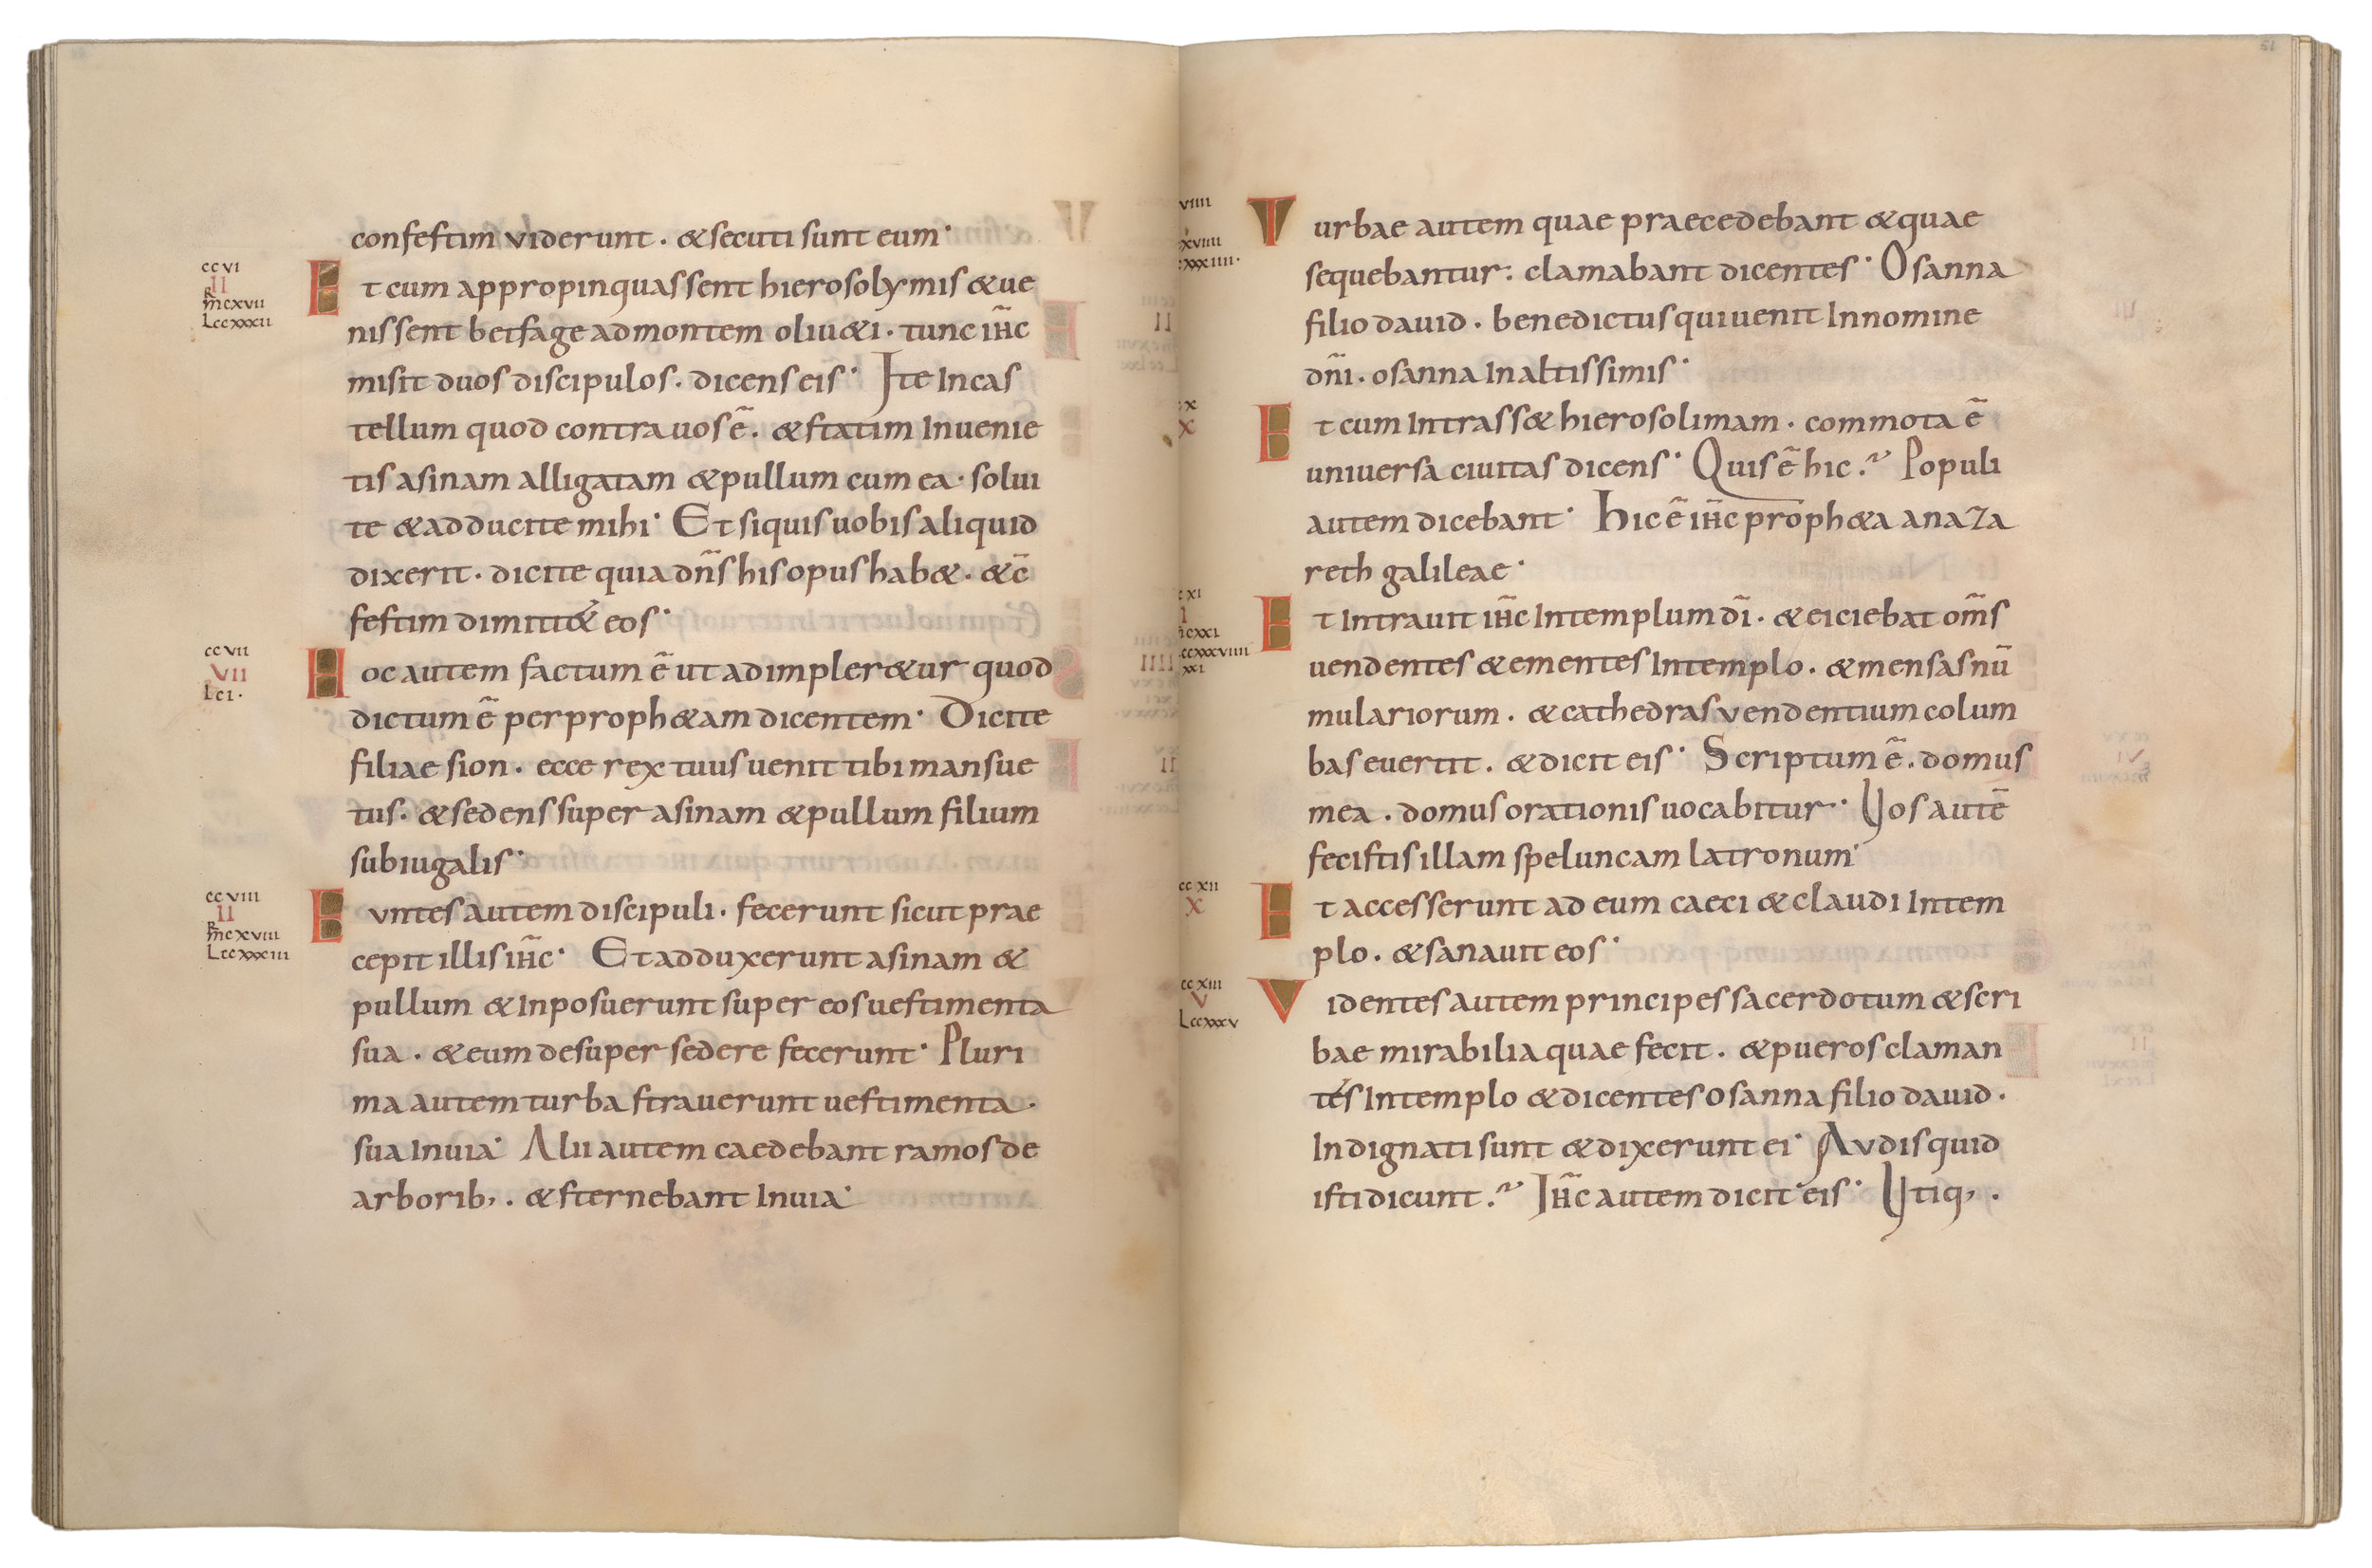 confestim viderunt · & secuti sunt eum·
cc vi
II
mcxvii
Lccxxxii
Et cum appropinquassent hierosolymis & ue
nissent betfage ad montem oliu&i · tunc ih̅c
misit duos discipulos · dicens eis· Ite In cas
tellum quod contra uos e̅ · & statim Inuenie
tis asinam alligatam & pullum cum ea · solui
te & adducite mihi· Et siquis uobis aliquid
dixerit · dicite quia dn̅s his opus hab& · & c̅
festim dimitt& eos·
cc vii
VII
Lci·
Hoc autem factum e̅ ut adimpler&ur quod
dictum e̅ per proph&am dicentem· Dicite
filiae sion · ecce rex tuus uenit tibi mansue
tus · & sedens super asinam & pullum filium
subiugalis·
cc viii
II
mcxviii
Lccxxxiii
Evntes autem discipuli · fecerunt sicut prae
cepit illis ih̅c· Et adduxerunt asinam &
pullum & Inposuerunt super eos uestimenta
sua · & eum desuper sedere fecerunt· Pluri
ma autem turba strauerunt uestimenta ·
sua In uia· Alii autem caedebant ramos de
arborib, · & sternebant In uia·
viiii
Turbae autem quae praecedebant & quae
sequebantur: clamabant dicentes· Osanna
filio dauid · benedictus qui uenit In nomine
dn̅i · osanna In altissimis·
x
X
Et cum Intrass& hierosolimam · commota e̅
uniuersa ciuitas dicens· Quis e̅ hic? Populi
autem dicebant· Hic e̅ ih̅c proph&a a naza
reth galileae·
xi
I
Et Intrauit ih̅c In templum di̅ · & eiciebat om̅s
uendentes & ementes In templo · & mensas nu̅
mulariorum · & cathedras vendentium colum
bas euertit · & dicit eis· Scriptum e̅ · domus
mea · domus orationis uocabitur· Uos aute̅
fecistis illam speluncam latronum·
cc xii
X
Et accesserunt ad eum caeci & claudi In tem
plo · & sanauit eos·
cc xiii
V
Lccxxxv
Videntes autem principes sacerdotum & scri
bae mirabilia quae fecit · & pueros claman
tes In templo & dicentes osanna filio dauid ·
Indignati sunt & dixerunt ei· Avdis quid
isti dicunt? Ih̅c autem dicit eis· Utiq, ·